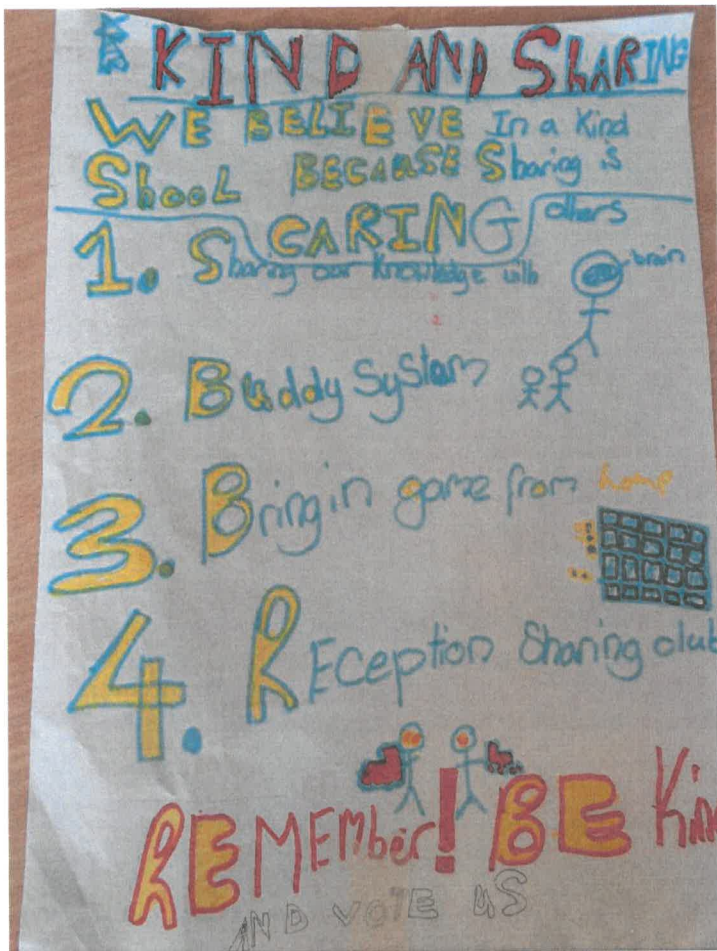 KIND AND ShARING
WE BELIEVE In a Kind
ShooL BECAUSE Sharing is
CARING
1. Sharing our knowledge with others
brain
2. Buddy System
3. Bring in game from home
4. REception Sharing club
REMEMber! BE Kin
AND VOTE US